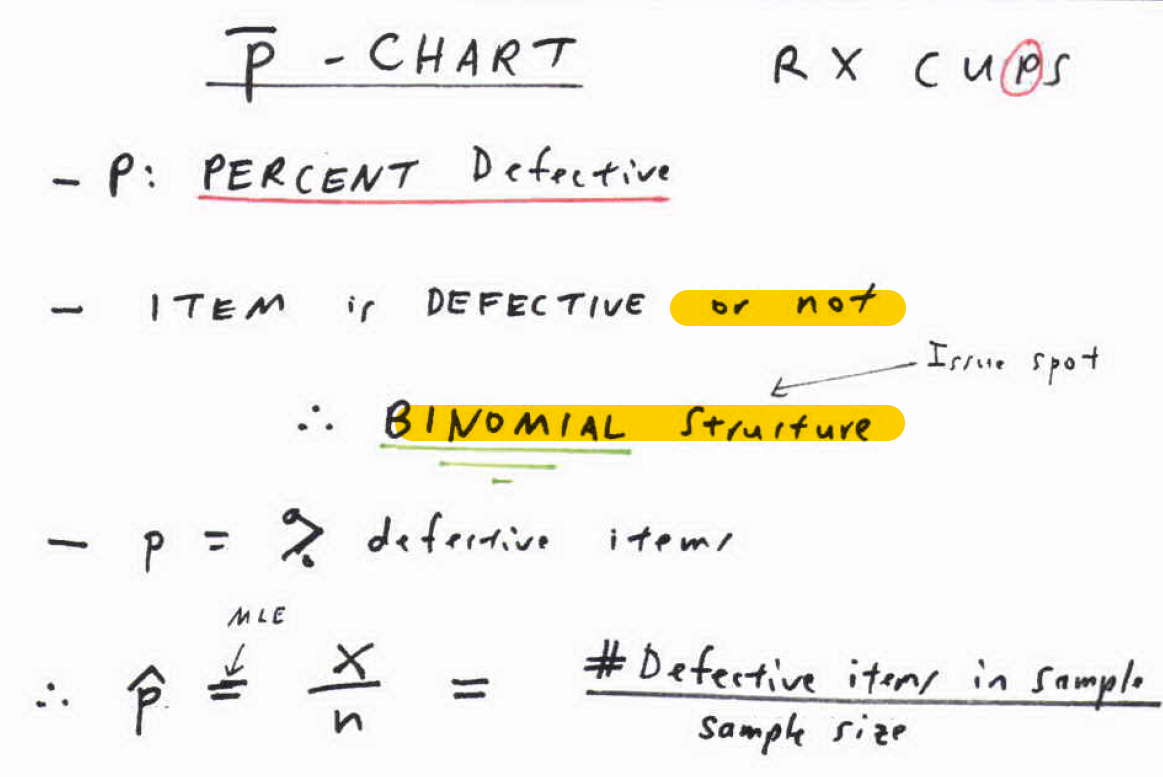 p̅ - CHART RX CUPS
- P: PERCENT Defective
- ITEM is DEFECTIVE or not
Issue spot
∴ BINOMIAL Structure
- p = % defective items
MLE
∴ p̂ = X/n = # Defective items in sample / sample size